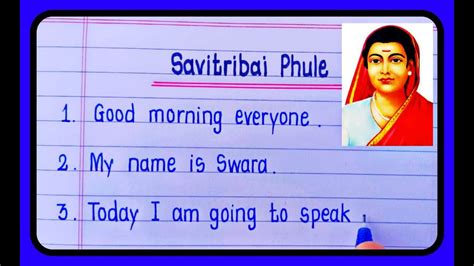 Savitribai Phule
1. Good morning everyone.
2. My name is Swara.
3. Today I am going to speak